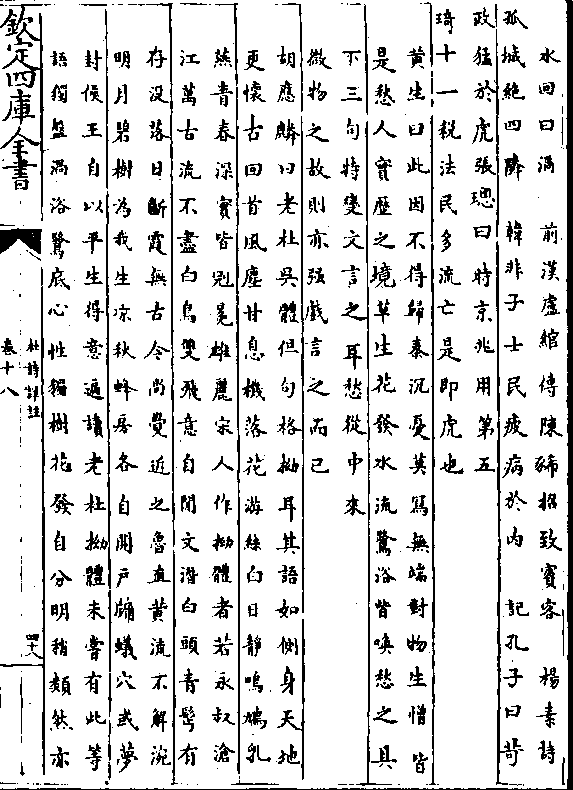 水回曰渦　前漢盧綰傳陳豨招致賓客　楊素詩
孤城絶四鄰　韓非子士民疲病於内　記孔子曰苛
政猛於虎張璁曰時京兆用第五
琦十一税法民多流亡是即虎也
黄生曰此因不得歸秦沉憂莫寫無端對物生憎皆
是愁人實歴之境草生花發水流鷺浴皆喚愁之具
下三句特變文言之耳愁從中來
微物之故則亦强戲言之而已
胡應麟曰老杜吳體但句格拗耳其語如側身天地
更懷古回首風塵甘息機落花游絲白日靜鳴鳩乳
燕青春深實皆冠冕雄麗宋人作拗體者若永叔滄
江萬古流不盡白鳥雙飛意自閒文潛白頭青髩有
存没落日斷霞無古今尚覺近之魯直黄流不解涴
明月碧樹為我生凉秋蜂房各自開戸牖蟻穴或夢
封侯王自以平生得意遍讀老杜拗體未嘗有此等
語獨盤渦浴鷺底心性獨樹花發自分明稍類然亦
欽定四庫全書
杜詩詳註
卷十八
四十八